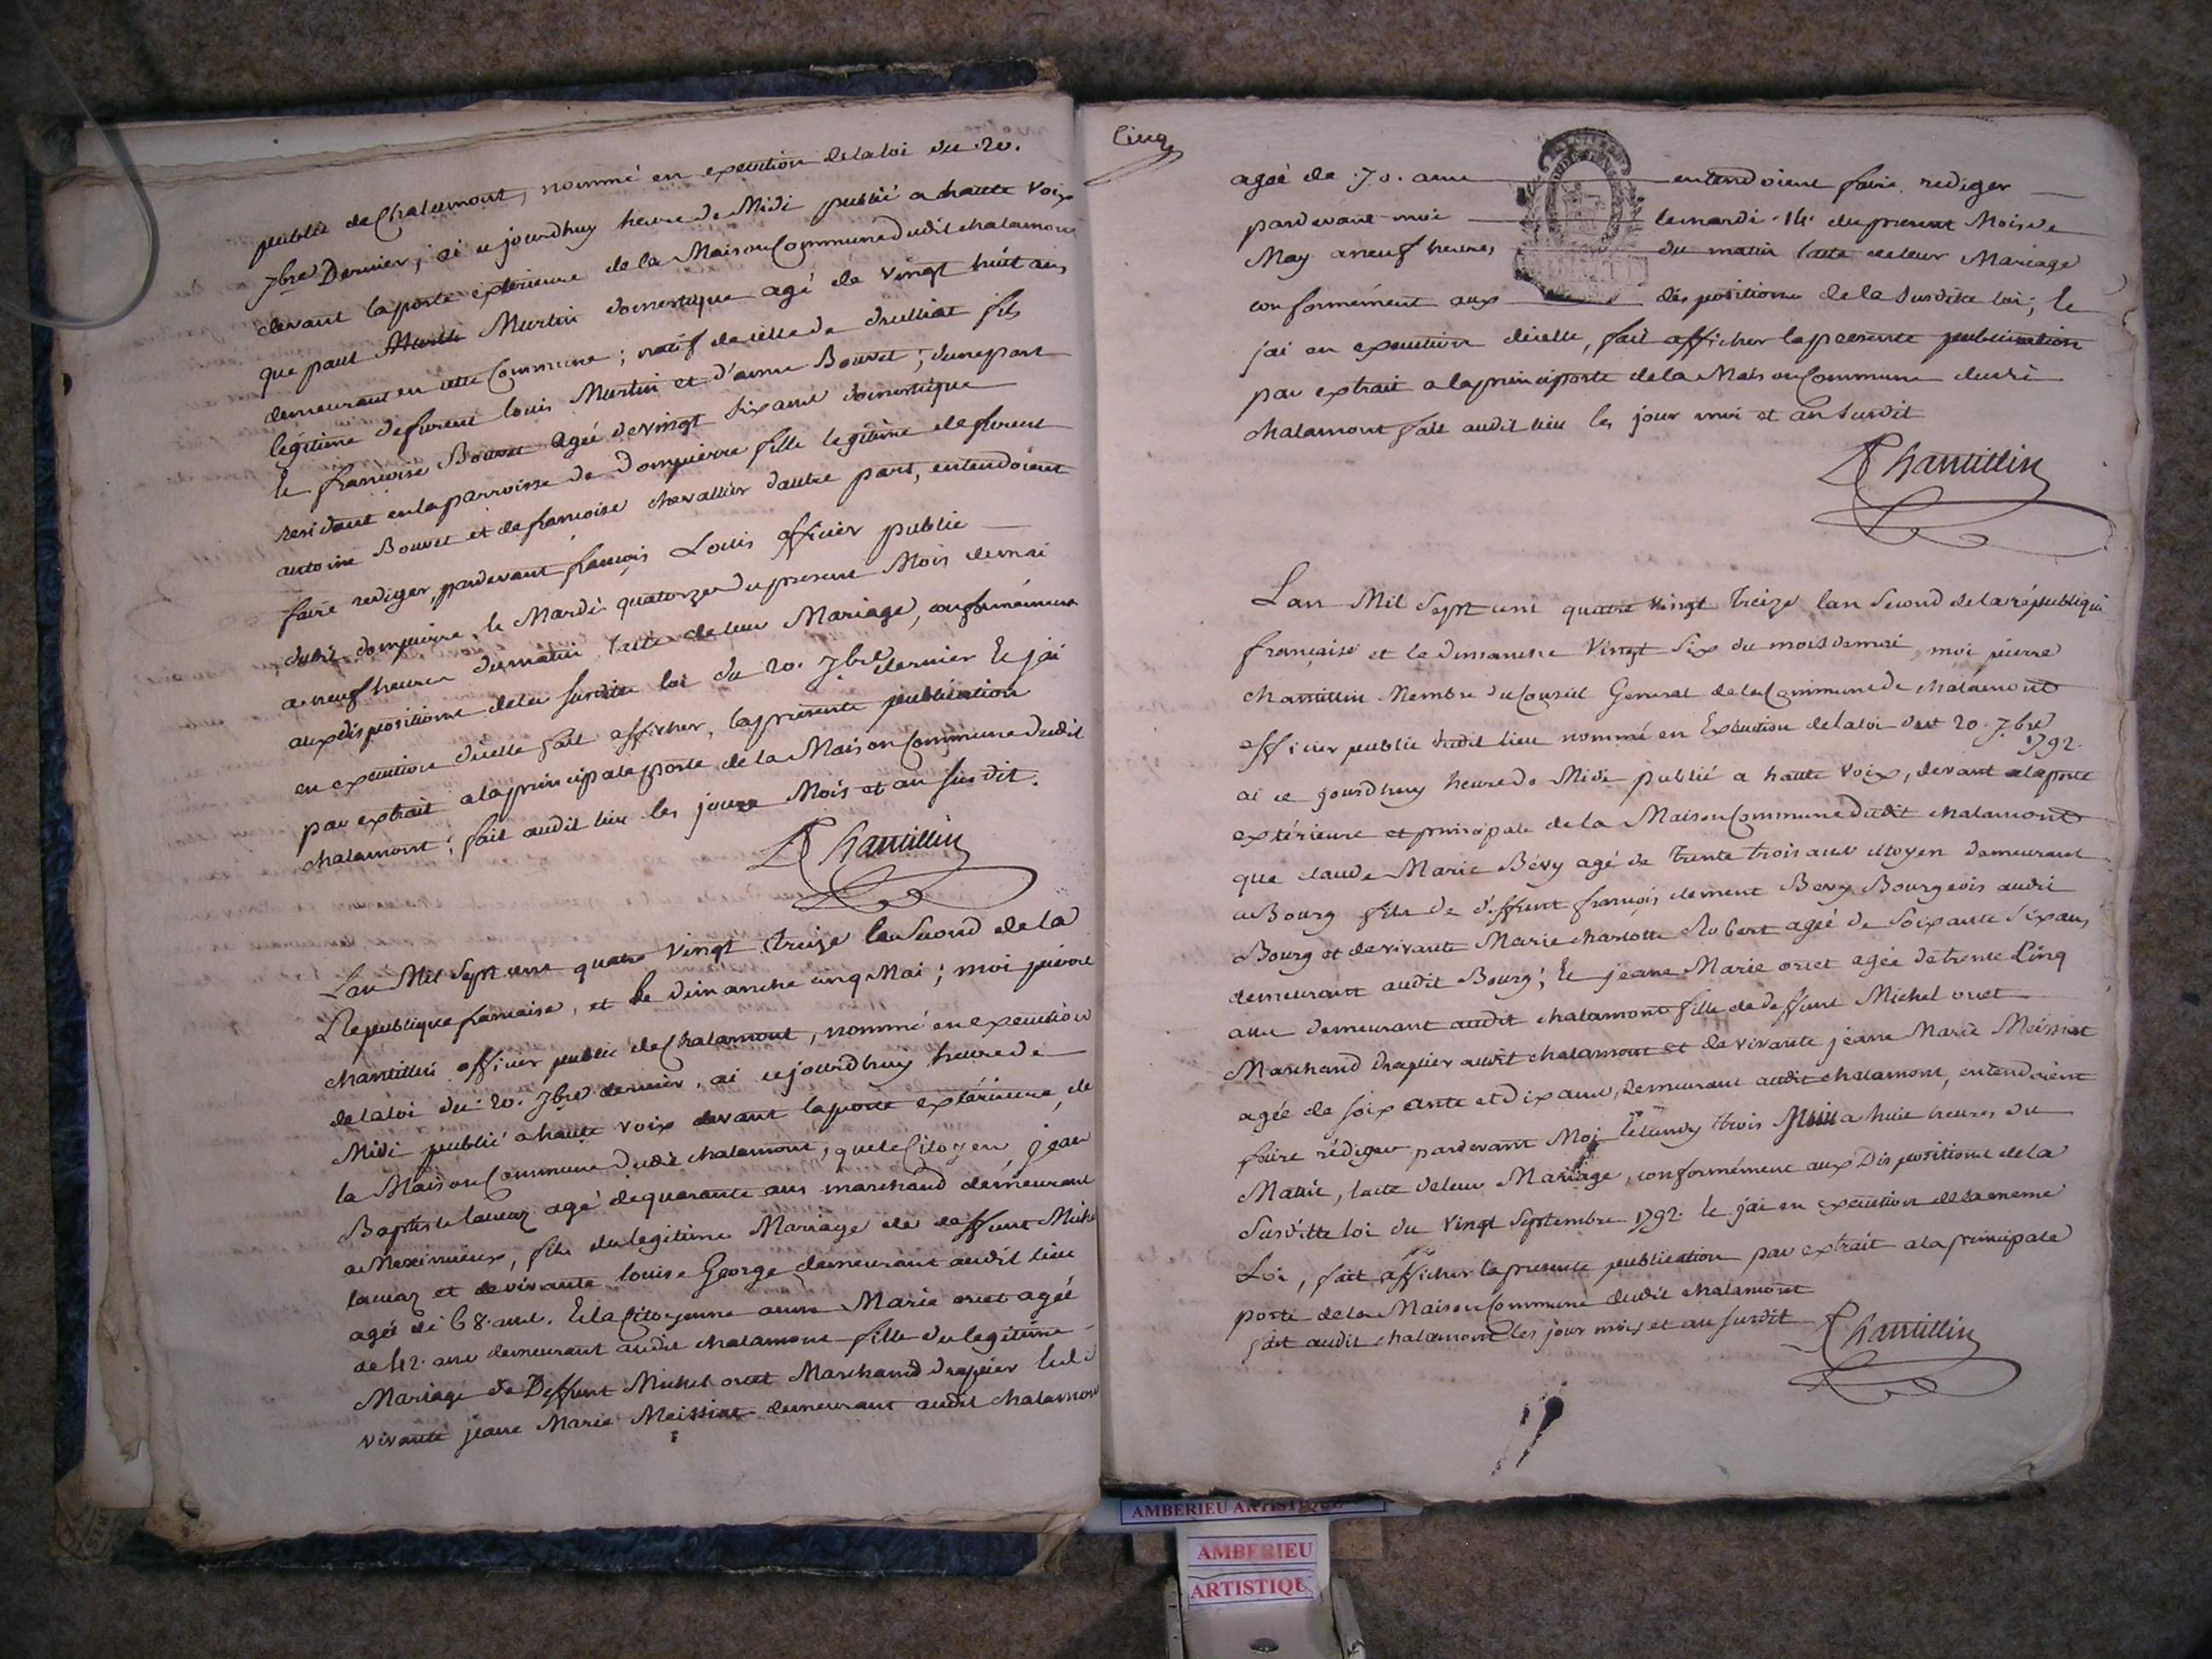 public de Chalamont, nommé en execution de la loi du 20.
7bre Dernier, ai cejourdhuy heure de Midi publié a haute voix
devant la porte exterieure de la Maison Commune dudit chalamont
que paul Murtin domestique agé de vingt huit ans
demeurant en cette Commune; natif de celle de druilliat fils
légitime defurent louis Murtin et d'anne Bouvet; d'une part
Et francoise Bouvet agée de vingt six ans domestique
residant en la parroisse de dompierre fille legitime de furent
antoine Bouvet et de francoise chevallier dautre part, entendoient
faire rediger, pardevant francois Louis officier public
dudit dompierre, le Mardi quatorze du present Mois de mai
a neuf heures du matin lacte de leur Mariage, conformément
aux dispositions de la susditte loi du 20. 7bre dernier Et jai
en execution dicelle fait afficher, la presente publication
par extrait a la principale porte de la Maison Commune dudit
chalamont; fait audit lieu les jour Mois et an susdit.
Chantillin
Lan Mil sept cent quatre vingt treize lan second de la
Republique francaise, et le dimanche cinq Mai; moi pierre
chantillin officier public de Chalamont, nommé en execution
de la loi du 20. 7bre dernier, ai cejourdhuy heure de
Midi publié a haute voix devant la porte extérieure, de
la Maison Commune dudit chalamont, que le Citoyen jean
Baptiste lauraz agé de quarante ans marchand demeurant
a Meximieux, fils du legitime Mariage de deffunt Michel
lauraz et de vivante louise George demeurant audit lieu
agée de 68. ans. Et la Citoyenne anne Marie orcet agée
de 42. ans demeurant audit chalamont fille du legitime
Mariage de Deffunt Michel orcet Marchand drapier Et de
vivante jeane Marie Meissiat demeurant audit chalamont
Cinq
agée de 70. ans entendoient faire rediger
pardevant moi le mardi 14 du present Mois de
May a neuf heures du matin lacte de leur Mariage
conformément aux dispositions de la susdite loi; Et
jai en execution dicelle, fait afficher la presente publication
par extrait a la princip porte de la Maison Commune dudit
chalamont fait audit lieu les jour moi et an susdit
Chantillin
Lan Mil sept cent quatre vingt treize lan second de la républiqu
francaise et le dimanche vingt six du mois de mai, moi pierre
chantillin Membre du Conseil General de la Commune de chalamont
officier public dudit lieu nommé en Exécution de la loi du 20. 7bre
1792.
ai ce jourdhuy heure de Midi publié a haute voix, devant la porte
extérieure et principale de la Maison Commune dudit chalamont
que claude Marie Bévy agé de trente trois ans citoyen demeurant
a Bourg fils de déffunt françois clement Bevy Bourgeois audit
Bourg et de vivante Marie charlotte Robert agée de soixante six ans
demeurant audit Bourg; Et jeane Marie orcet agée de trente Cinq
ans demeurant audit chalamont fille de deffunt Michel orcet
Marchand drapier audit chalamont et de vivante jeane Marie Meissiat
agée de soixante et dix ans, demeurant audit chalamont, entendoient
faire rédiger pardevant Moi le lundy trois juin a huit heures du
Matin, lacte de leur Mariage, conformément aux Dispositions de la
susditte loi du vingt septembre 1792. Et jai en execution de la meme
Loi, fait afficher la presente publication par extrait a la principale
porte de la Maison Commune dudit chalamont
fait audit chalamont les jour mois et an susdit Chantillin
AMBERIEU ARTISTIQUE
AMBERIEU
ARTISTIQU